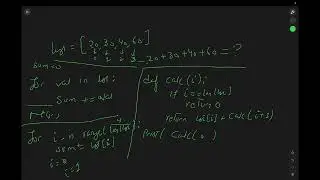 list = [20, 30, 40, 60]
0 1 2 3
20 + 30 + 40 + 60 = ?
sum = 0
for val in list:
sum += val
for i in range(len(list)):
sum + list[i]
i = 0
i = 1
def calc(i):
if i == len(list)
return 0
return list[i] + calc(i+1)
print(calc(0